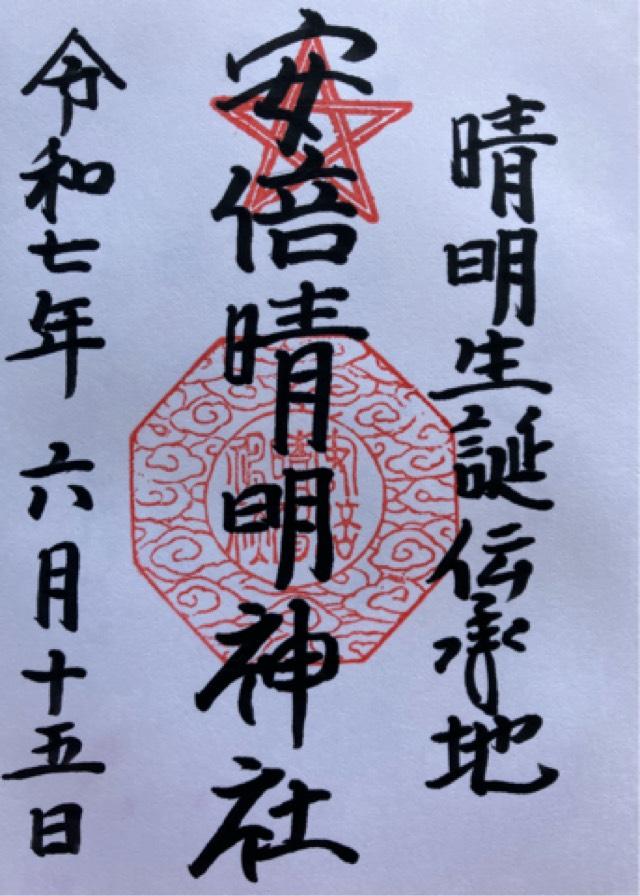 晴明生誕伝承地
安倍晴明神社
令和七年 六月十五日